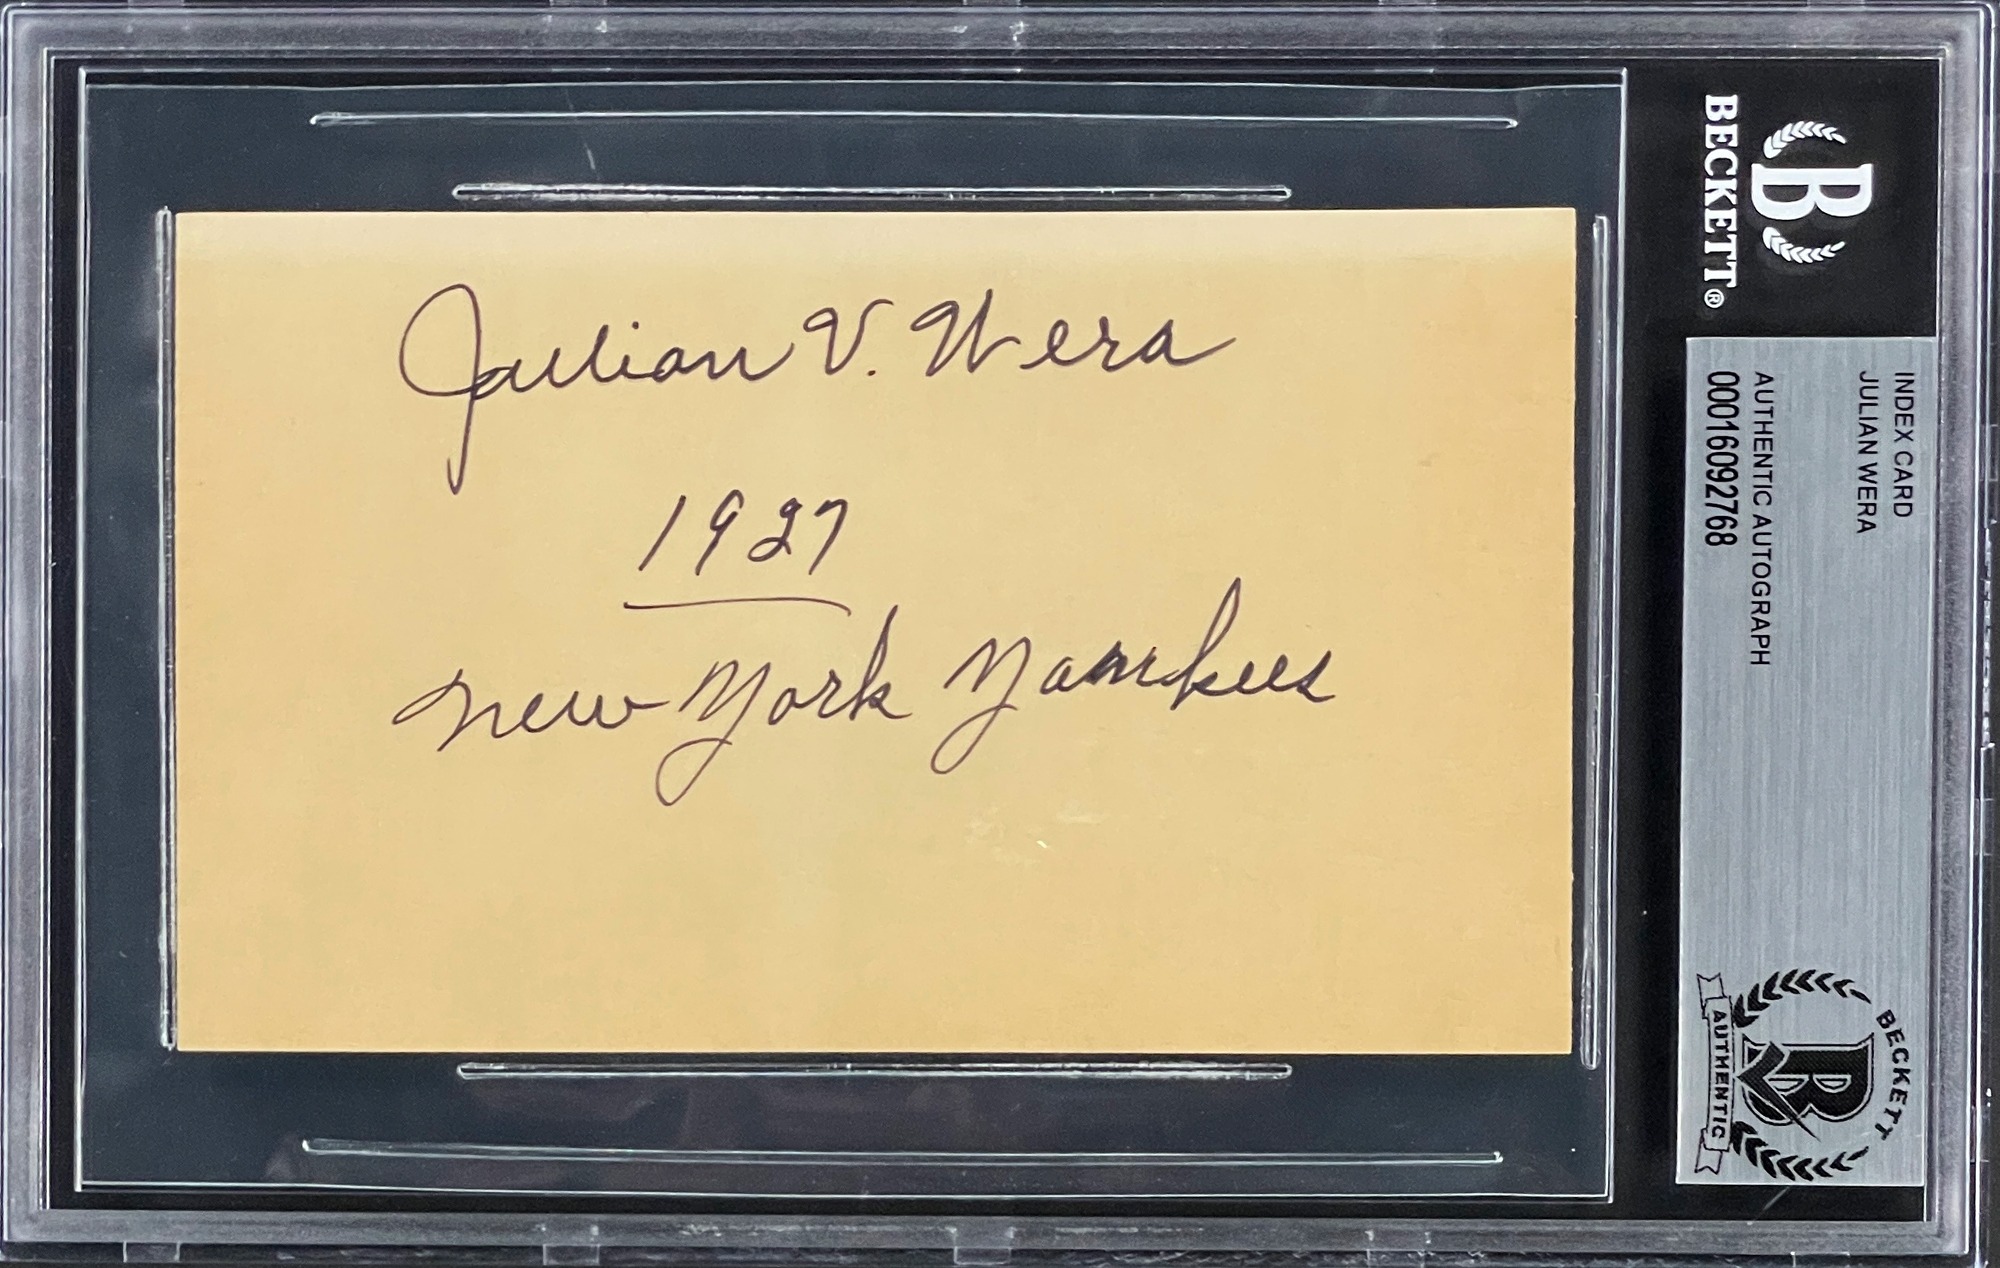 Julian V. Wera
1927
New York Yankees
B
BECKETT®
INDEX CARD
JULIAN WERA
AUTHENTIC AUTOGRAPH
00016092768
BECKETT
B
AUTHENTIC